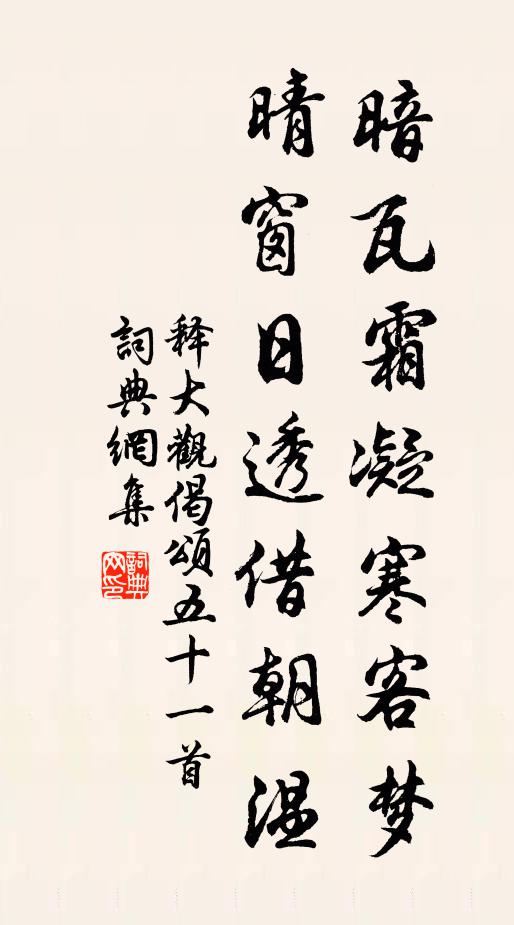 暗瓦霜凝寒客梦
晴窗日透借朝温
释大觀偈頌五十一首
詞典網集
詞典网印